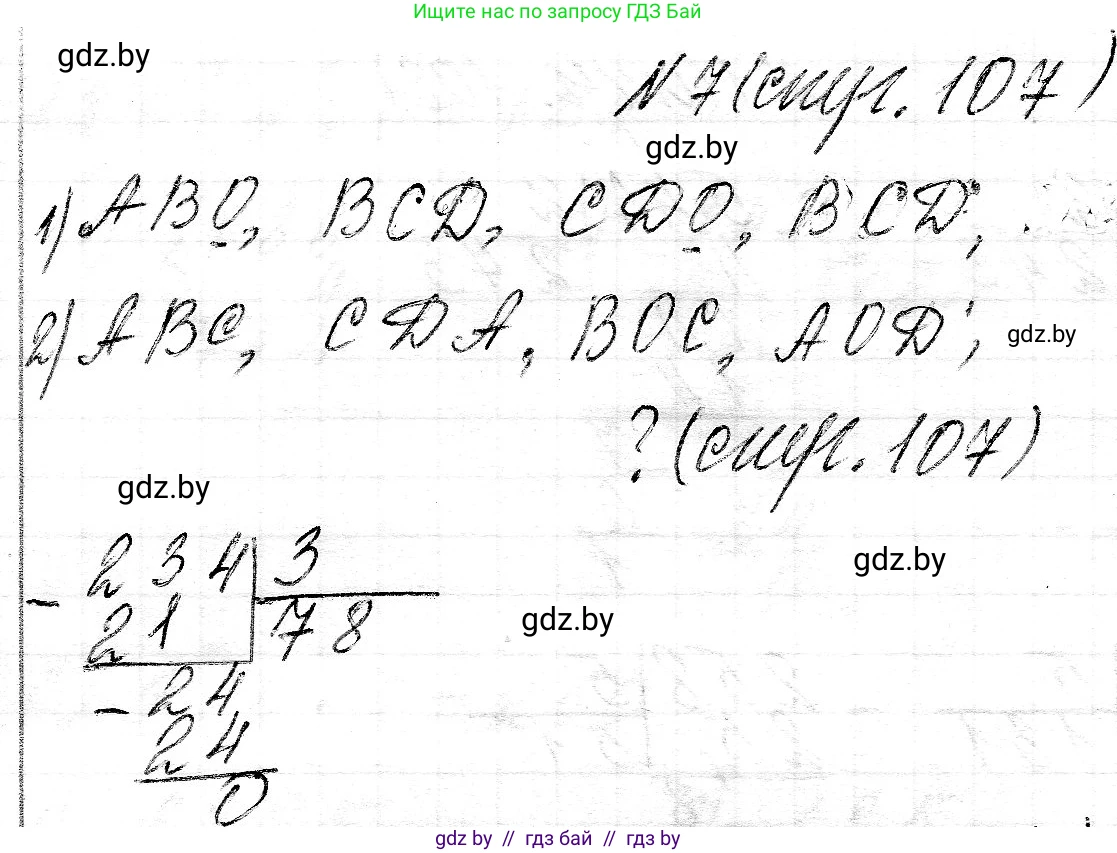 Ищите нас по запросу ГДЗ Бай
gdz.by
№ 7 (стр. 107)
gdz.by
1) ABO, BCD, CDO, BCD;
2) ABC, CDA, BOC, AOD;
gdz.by
? (стр. 107)
gdz.by
234 3
gdz.by
- 21 78
gdz.by
- 24
24
0
gdz.by // гдз бай // гдз by